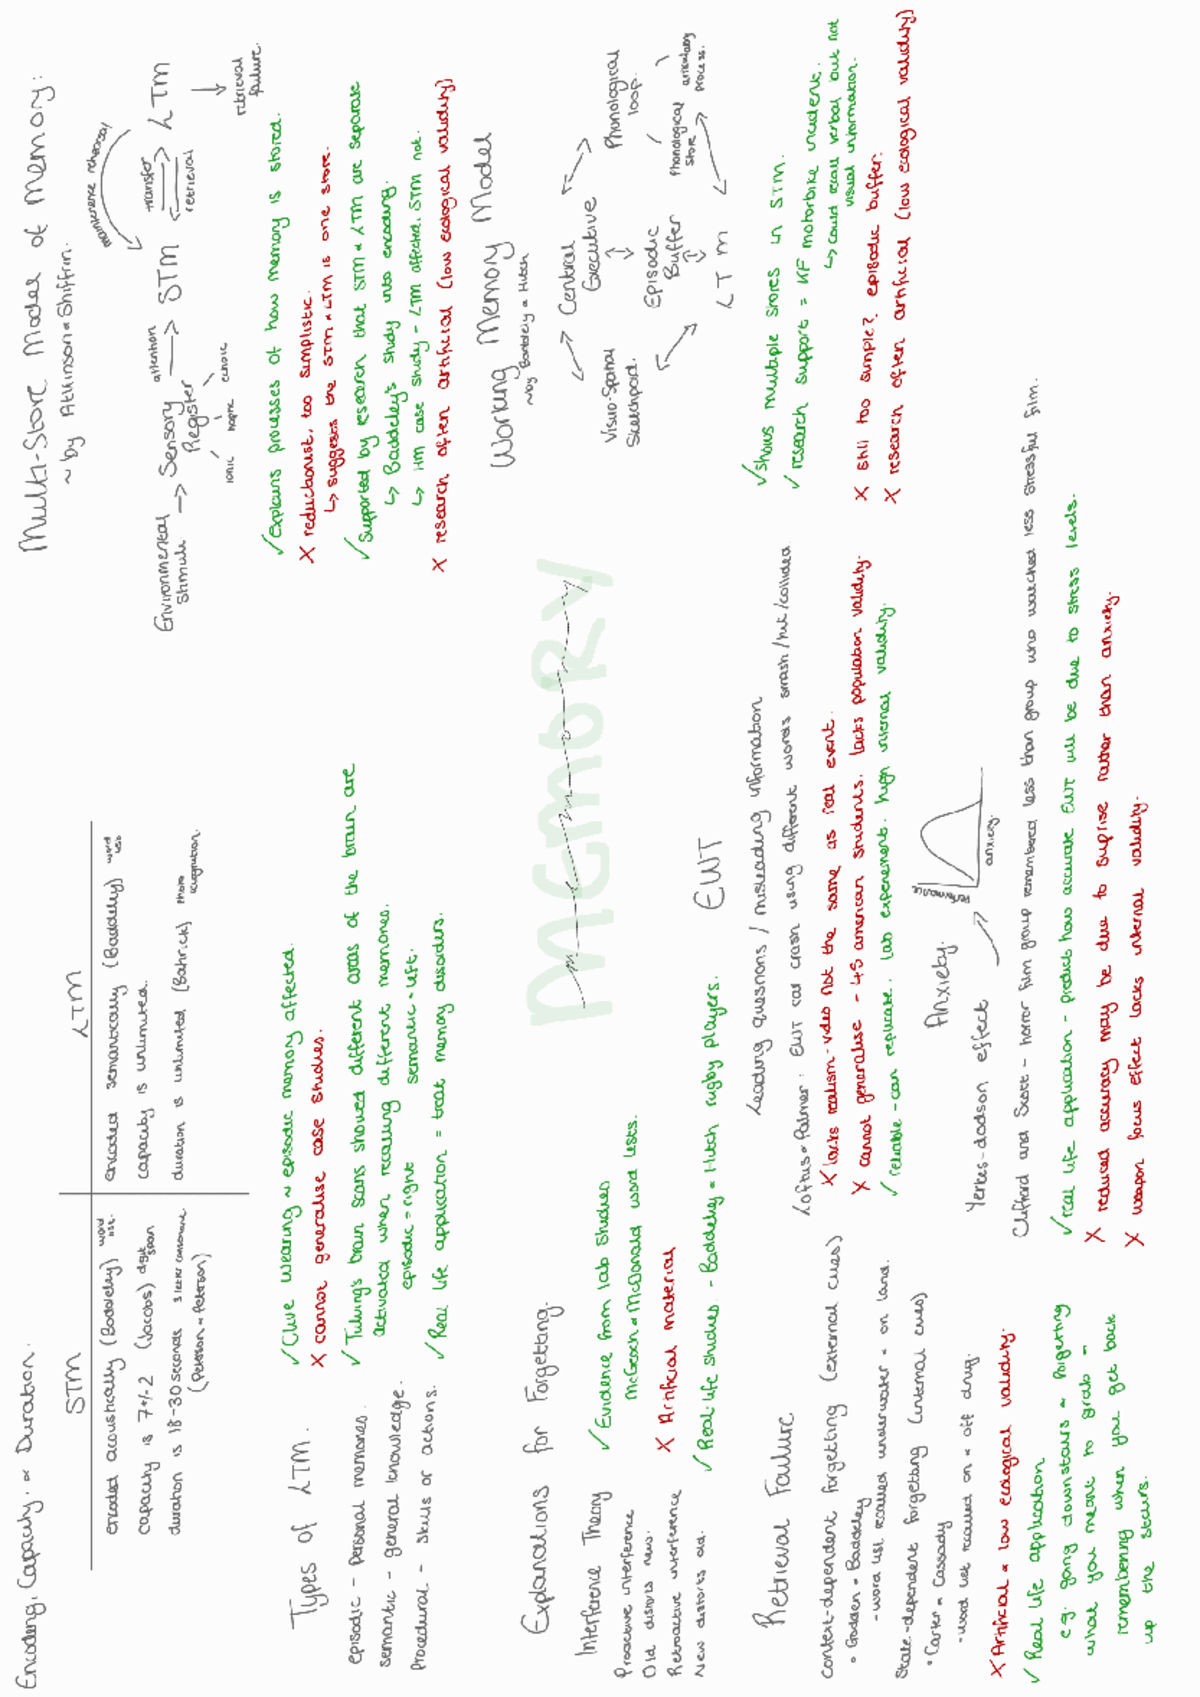 Encoding, Capacity, & Duration.
STM
LTM
encoded acoustically (Baddeley) word list.
capacity is 7+/-2 (Jacobs) digit span
duration is 18-30 seconds 3 letter consonant
(Peterson & Peterson)
encoded semantically (Baddeley) word list
capacity is unlimited.
duration is unlimited (Bahrick) photo recognition.
Types of LTM.
episodic - personal memories.
semantic - general knowledge.
Procedural - skills or actions.
✓ Clive Wearing ~ episodic memory affected.
X cannot generalise case studies.
✓ Tulving's brain scans showed different areas of the brain are
activated when recalling different memories.
episodic = right semantic = left.
✓ Real life application = treat memory disorders.
Explanations for Forgetting.
Interference Theory
Proactive interference
Old distorts new.
Retroactive interference
New distorts old.
✓ Evidence from lab studies
McGeoch & McDonald word lists.
X Artificial material
✓ Real-life studies. - Baddeley & Hitch rugby players.
Retrieval Failure
context-dependent forgetting (external cues)
• Godden & Baddeley
- word list recalled underwater & on land.
State-dependent forgetting (internal cues)
• Carter & Cassady
- word list recalled on & off drug.
X Artificial & low ecological validity.
✓ Real life application
e.g. going downstairs & forgetting
what you meant to grab -
remembering when you get back
up the stairs.
Multi-Store Model of Memory:
~ by Atkinson & Shiffrin.
maintenence rehearsal
Environmental stimuli → Sensory Register attention → STM transfer retrieval LTM
iconic haptic echoic
retrieval failure.
✓ Explains processes of how memory is stored.
X reductionist, too simplistic.
↳ suggests the STM & LTM is one store.
✓ Supported by research that STM & LTM are separate
↳ Baddeley's study into encoding.
↳ HM case study - LTM affected STM not.
X research often artificial (low ecological validity)
MEMORY
MEMORY
Working Memory Model
~by Baddeley & Hitch
Visuo-Spatial Sketchpad.
Central Executive
Phonological loop.
Episodic Buffer
Phonological Store
articulatory process.
LTM
✓ shows multiple stores in STM.
✓ research support = KF motorbike incident.
↳ could recall verbal but not
visual information.
X still too simple? episodic buffer.
X research often artificial (low ecological validity)
EWT
Leading questions / misleading information
Loftus & Palmer: EWT car crash using different words smash/hit/collided
X lacks realism - video not the same as real event.
X cannot generalise - 45 american students. lacks population validity.
✓ reliable - can replicate. lab experiement. high internal validity.
Anxiety.
Yerkes-dodson effect
performance
anxiety.
Clifford and Scott - horror film group remembered less than group who watched less stressful film.
✓ real life application - predicts how accurate EWT will be due to stress levels.
X reduced accuracy may be due to suprise rather than anxiety.
X weapon focus effect lacks internal validity.